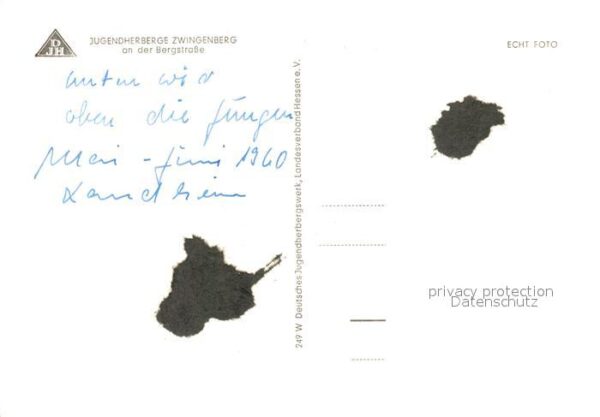 DJH
JUGENDHERBERGE ZWINGENBERG
an der Bergstraße
ECHT FOTO
unten wir
oben die Jungen
Mai - Juni 1960
Landheim
249 W Deutsches Jugendherbergswerk, Landesverband Hessen e. V.
privacy protection
Datenschutz